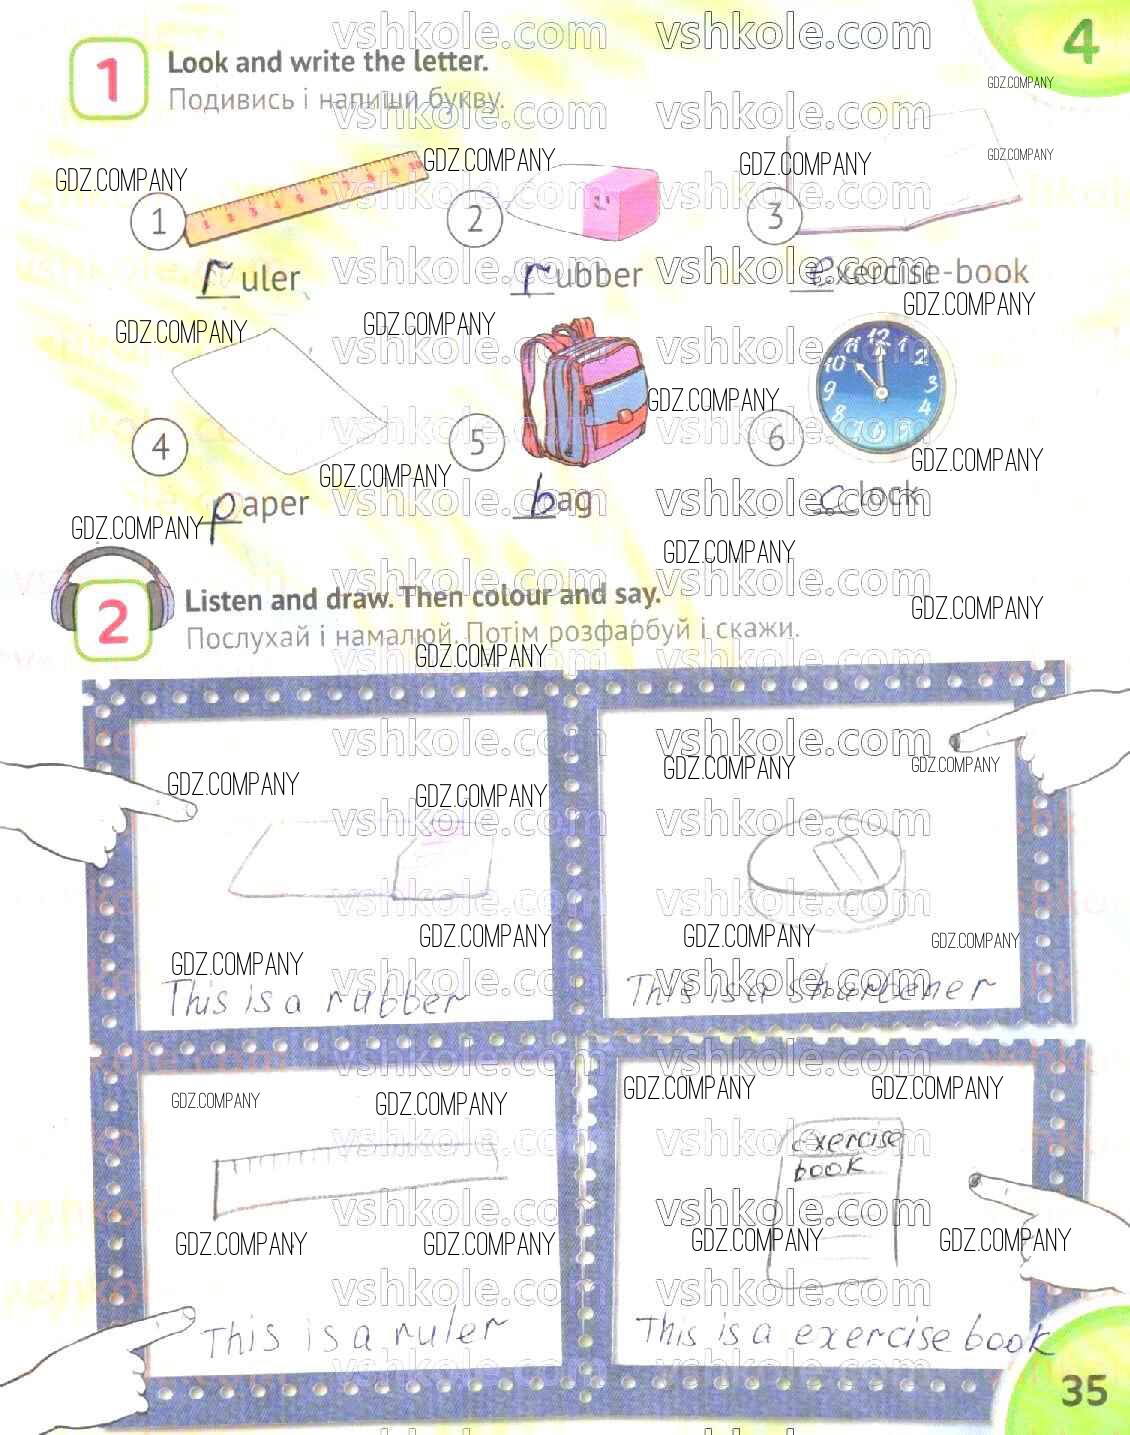 4
1 Look and write the letter.
Подивись і напиши букву.
1 2 3
ruler rubber exercise-book
4 5 6
paper bag clock
2 Listen and draw. Then colour and say.
Послухай і намалюй. Потім розфарбуй і скажи.
This is a rubber
This is a sharpener
exercise
book
This is a ruler
This is a exercise book
35
vshkole.com
GDZ.COMPANY